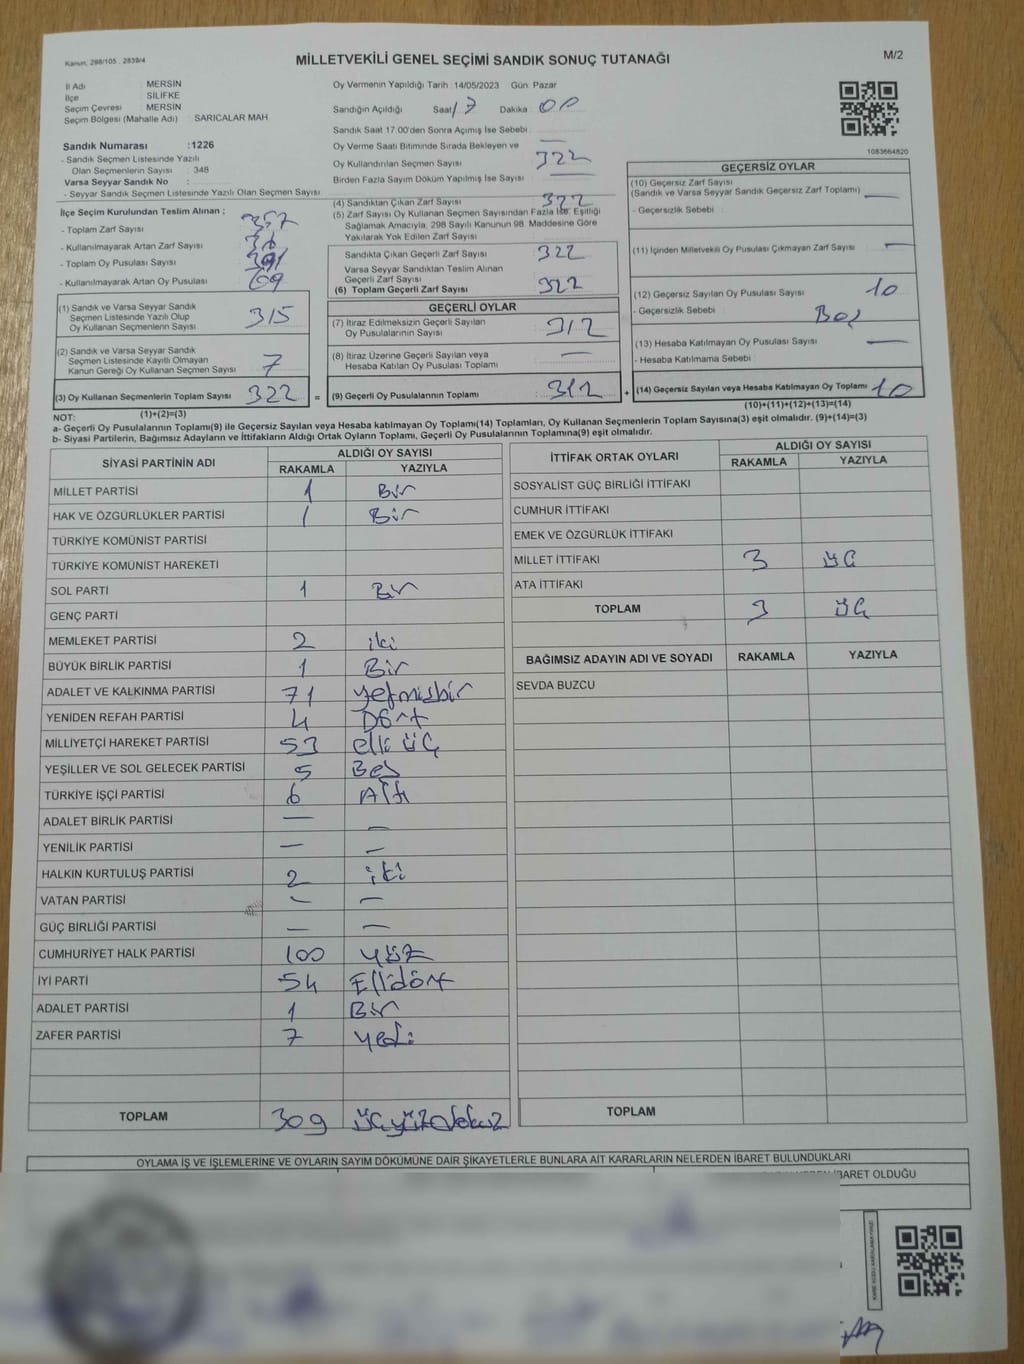 Kanun, 298/105 , 2839/4
MİLLETVEKİLİ GENEL SEÇİMİ SANDIK SONUÇ TUTANAĞI
M/2
İl Adı MERSİN
İlçe SİLİFKE
Seçim Çevresi MERSİN
Seçim Bölgesi (Mahalle Adı) : SARICALAR MAH.
Oy Vermenin Yapıldığı Tarih : 14/05/2023 Gün: Pazar
Sandığın Açıldığı Saat 17 Dakika 00
Sandık Saat 17:00'den Sonra Açımış İse Sebebi
Oy Verme Saati Bitiminde Sırada Bekleyen ve —
Oy Kullandırılan Seçmen Sayısı 322
Birden Fazla Sayım Döküm Yapılmış İse Sayısı —
1083664820
Sandık Numarası :1226
- Sandık Seçmen Listesinde Yazılı
Olan Seçmenlerin Sayısı : 348
Varsa Seyyar Sandık No :
- Seyyar Sandık Seçmen Listesinde Yazılı Olan Seçmen Sayısı
İlçe Seçim Kurulundan Teslim Alınan ;
- Toplam Zarf Sayısı 357
- Kullanılmayarak Artan Zarf Sayısı
- Toplam Oy Pusulası Sayısı 391
- Kullanılmayarak Artan Oy Pusulası 69
(1) Sandık ve Varsa Seyyar Sandık
Seçmen Listesinde Yazılı Olup
Oy Kullanan Seçmenlerin Sayısı 315
(2) Sandık ve Varsa Seyyar Sandık
Seçmen Listesinde Kayıtlı Olmayan
Kanun Gereği Oy Kullanan Seçmen Sayısı 7
(3) Oy Kullanan Seçmenlerin Toplam Sayısı 322 =
(4) Sandıktan Çıkan Zarf Sayısı 322
(5) Zarf Sayısı Oy Kullanan Seçmen Sayısından Fazla İse, Eşitliği
Sağlamak Amacıyla, 298 Sayılı Kanunun 98. Maddesine Göre
Yakılarak Yok Edilen Zarf Sayısı
Sandıkta Çıkan Geçerli Zarf Sayısı 322
Varsa Seyyar Sandıktan Teslim Alınan
Geçerli Zarf Sayısı
(6) Toplam Geçerli Zarf Sayısı 322
GEÇERLİ OYLAR
(7) İtiraz Edilmeksizin Geçerli Sayılan
Oy Pusulalarının Sayısı 312
(8) İtiraz Üzerine Geçerli Sayılan veya —
Hesaba Katılan Oy Pusulası Toplamı
(9) Geçerli Oy Pusulalarının Toplamı 312 +
GEÇERSİZ OYLAR
(10) Geçersiz Zarf Sayısı
(Sandık ve Varsa Seyyar Sandık Geçersiz Zarf Toplamı) —
- Geçersizlik Sebebi :
(11) İçinden Milletvekili Oy Pusulası Çıkmayan Zarf Sayısı —
(12) Geçersiz Sayılan Oy Pusulası Sayısı 10
- Geçersizlik Sebebi : Boş
(13) Hesaba Katılmayan Oy Pusulası Sayısı —
- Hesaba Katılmama Sebebi
(14) Geçersiz Sayılan veya Hesaba Katılmayan Oy Toplamı 10
NOT: (1)+(2)=(3)
(10)+(11)+(12)+(13)=(14)
a- Geçerli Oy Pusulalarının Toplamı(9) ile Geçersiz Sayılan veya Hesaba katılmayan Oy Toplamı(14) Toplamları, Oy Kullanan Seçmenlerin Toplam Sayısına(3) eşit olmalıdır. (9)+(14)=(3)
b- Siyasi Partilerin, Bağımsız Adayların ve İttifakların Aldığı Ortak Oyların Toplamı, Geçerli Oy Pusulalarının Toplamına(9) eşit olmalıdır.
SİYASİ PARTİNİN ADI
ALDIĞI OY SAYISI
RAKAMLA YAZIYLA
MİLLET PARTİSİ 1 Bir
HAK VE ÖZGÜRLÜKLER PARTİSİ 1 Bir
TÜRKİYE KOMÜNİST PARTİSİ
TÜRKİYE KOMÜNİST HAREKETİ
SOL PARTİ 1 Bir
GENÇ PARTİ
MEMLEKET PARTİSİ 2 iki
BÜYÜK BİRLİK PARTİSİ 1 Bir
ADALET VE KALKINMA PARTİSİ 71 yetmişbir
YENİDEN REFAH PARTİSİ 4 Dört
MİLLİYETÇİ HAREKET PARTİSİ 53 elli üç
YEŞİLLER VE SOL GELECEK PARTİSİ 5 Beş
TÜRKİYE İŞÇİ PARTİSİ 6 Altı
ADALET BİRLİK PARTİSİ — —
YENİLİK PARTİSİ — —
HALKIN KURTULUŞ PARTİSİ 2 iki
VATAN PARTİSİ — —
GÜÇ BİRLİĞİ PARTİSİ — —
CUMHURİYET HALK PARTİSİ 100 yüz
İYİ PARTİ 54 Ellidört
ADALET PARTİSİ 1 Bir
ZAFER PARTİSİ 7 yedi
TOPLAM 309 üçyüzdokuz
İTTİFAK ORTAK OYLARI
ALDIĞI OY SAYISI
RAKAMLA YAZIYLA
SOSYALİST GÜÇ BİRLİĞİ İTTİFAKI
CUMHUR İTTİFAKI
EMEK VE ÖZGÜRLÜK İTTİFAKI
MİLLET İTTİFAKI 3 üç
ATA İTTİFAKI
TOPLAM 3 üç
BAĞIMSIZ ADAYIN ADI VE SOYADI RAKAMLA YAZIYLA
SEVDA BUZCU
TOPLAM
OYLAMA İŞ VE İŞLEMLERİNE VE OYLARIN SAYIM DÖKÜMÜNE DAİR ŞİKAYETLERLE BUNLARA AİT KARARLARIN NELERDEN İBARET BULUNDUKLARI
İBARET OLDUĞU